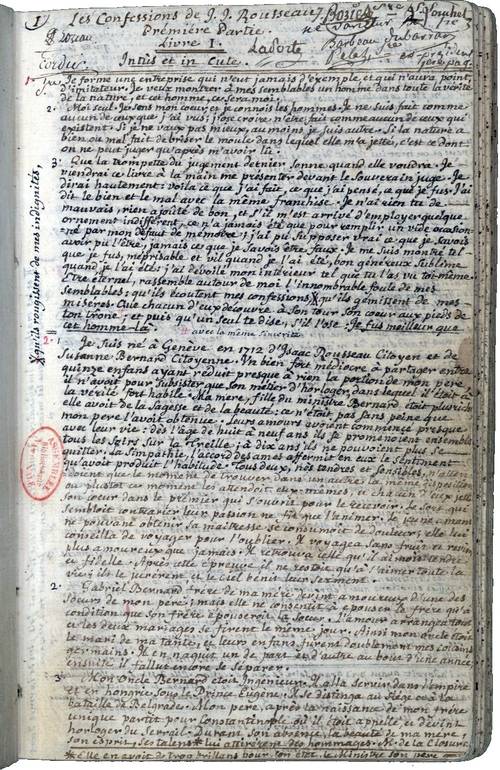 (1) Les Confessions de J. J. Rousseau.
Première Partie.
Livre I.
Intùs et in Cute.
1. Je forme une entreprise qui n'eut jamais d'exemple, et qui n'aura point
d'imitateur. Je veux montrer à mes semblables un homme dans toute la vérité
de la nature, et cet homme, ce sera moi.
2. Moi seul. Je sens mon coeur, et je connois les hommes. Je ne suis fait comme
aucun de ceux que j'ai vus; j'ose croire n'être fait comme aucun de ceux qui
existent. Si je ne vaux pas mieux, au moins je suis autre. Si la nature a
bien ou mal fait de briser le moule dans lequel elle m'a jetté, c'est ce dont
on ne peut juger qu'après m'avoir lu.
3. Que la trompette du jugement dernier sonne quand elle voudra. Je
viendrai ce livre à la main me présenter devant le Souverain juge. Je
dirai hautement: voila ce que j'ai fait, ce que j'ai pensé, ce que je fus. J'ai
dit le bien et le mal avec la même franchise. Je n'ai rien tu de
mauvais, rien ajoûté de bon, et s'il m'est arrivé d'employer quelque
ornement indifférent, ce n'a jamais été que pour remplir un vide occasion-
né par mon défaut de mémoire; j'ai pu supposer vrai ce que je savois
avoir pu l'être, jamais ce que je savois être faux. Je me suis montré tel
que je fus, méprisable et vil quand je l'ai été, bon, généreux, sublime,
quand je l'ai été: j'ai dévoilé mon intérieur tel que tu l'as vu toi-même.
Etre éternel, rassemble autour de moi l'innombrable foule de mes
semblables: qu'ils écoutent mes confessions, X qu'ils gémissent de mes
misères. Que chacun d'eux découvre à son tour son coeur aux pieds de
ton trône; et puis qu'un seul te dise, s'il l'ose: Je fus meilleur que
cet homme-là.
avec la même sincérité
X qu'ils rougissent de mes indignités,
2. 1. Je suis né à Genève en 1712 d'Isaac Rousseau Citoyen et de
Susanne Bernard Citoyenne. Un bien fort médiocre à partager entre
quinze enfans ayant réduit presque à rien la portion de mon père
il n'avoit pour subsister que son métier d'horloger, dans lequel il étoit à
la vérité fort habile. Ma mère, fille du ministre Bernard étoit plus riche
elle avoit de la sagesse et de la beauté: ce n'étoit pas sans peine que
mon père l'avoit obtenue. Leurs amours avoient commencé presque
avec leur vie: dès l'âge de huit à neuf ans ils se promenoient ensemble
tous les soirs sur la Treille; à dix ans ils ne pouvoient plus se
quitter. La simpathie, l'accord des ames affermit en eux le sentiment
qu'avoit produit l'habitude. Tous deux, nés tendres et sensibles,
que le moment de trouver dans un autre la même disposition
ou plustôt ce moment les attendoit eux-mêmes, et chacun d'eux jetta
son coeur dans le prémier qui s'ouvrit pour le recevoir. Le sort qui
sembloit contrarier leur passion ne fit que l'animer. Le jeune amant
ne pouvant obtenir sa maitresse se consumoit de douleur; elle lui
conseilla de voyager pour l'oublier. Il voyagea sans fruit et revint
plus amoureux que jamais. Il retrouva celle qu'il aimoit tendre
et fidelle. Après cette épreuve il ne restoit qu'à s'aimer toute la
vie; ils le jurèrent et le Ciel bénit leur serment.
2. Gabriel Bernard frère de ma mère devint amoureux d'une des
soeurs de mon père; mais elle ne consentit à épouser le frère qu'à
condition que son frère épouseroit la soeur. L'amour arrangea tout
et les deux mariages se firent le même jour. Ainsi mon oncle étoit
le mari de ma tante, et leurs enfans furent doublement mes cousins
germains. Il en naquit un de part et d'autre au bout d'une année
ensuite il fallut encore se séparer.
3. Mon Oncle Bernard étoit Ingénieur: il alla servir dans l'empire
et en hongrie sous le Prince Eugène. Il se distingua au siège et à la
bataille de Belgrade. Mon père, après la naissance de mon frère
unique partit pour Constantinople où il étoit appellé et devint
horloger du Serrail. Durant son absence, la beauté de ma mère,
son esprit, ses talens* lui attirèrent des hommages. M. de la Closure
* Elle en avoit de trop brillans pour son état, le Ministre son père